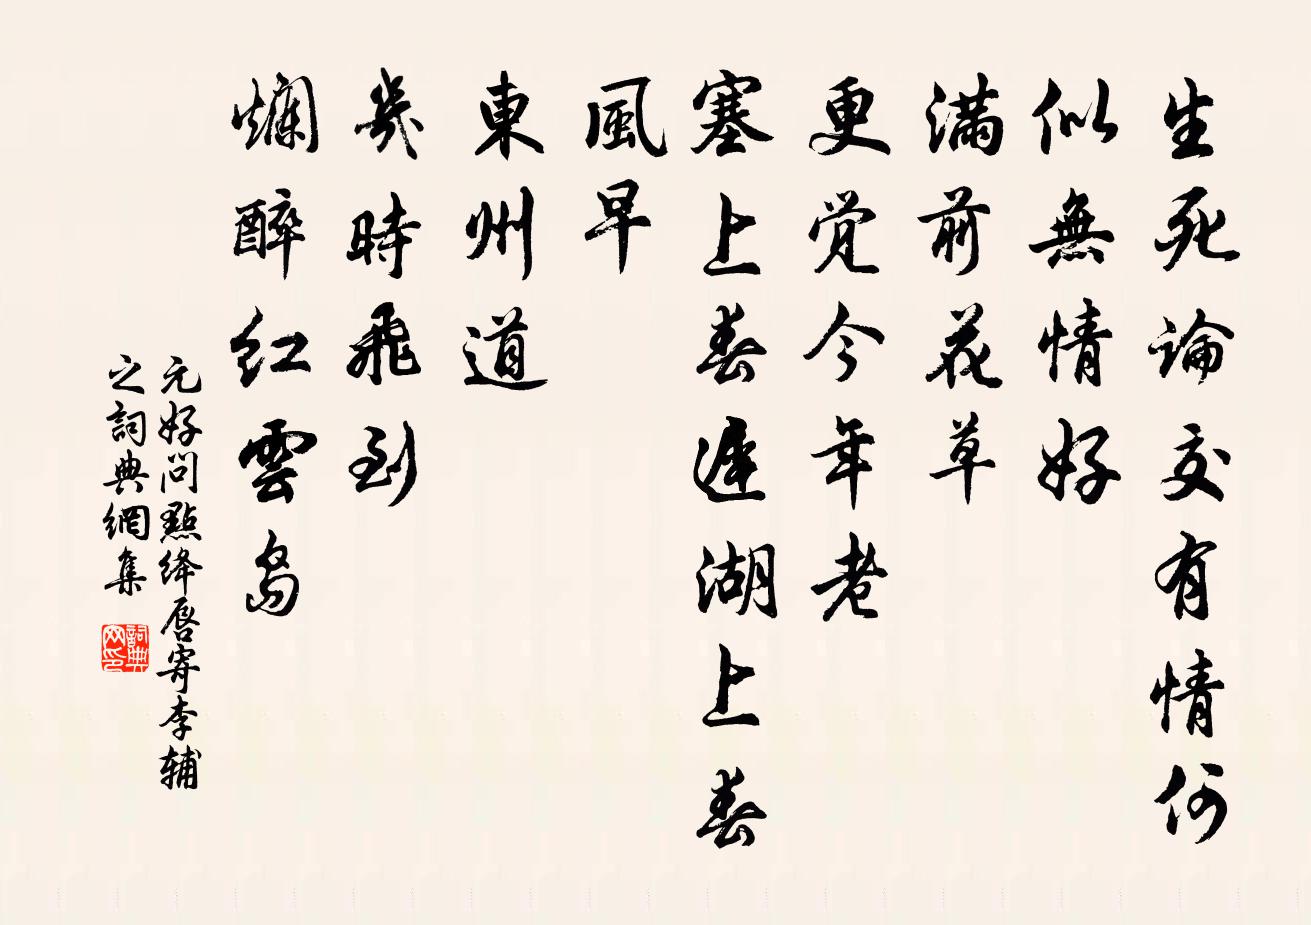 生死論交有情何
似無情好
滿前花草
更觉今年老
塞上春遲湖上春
風早
東州道
幾時飛到
爛醉紅雲島
元好问點绛唇寄李辅
之詞典網集
詞典
网印